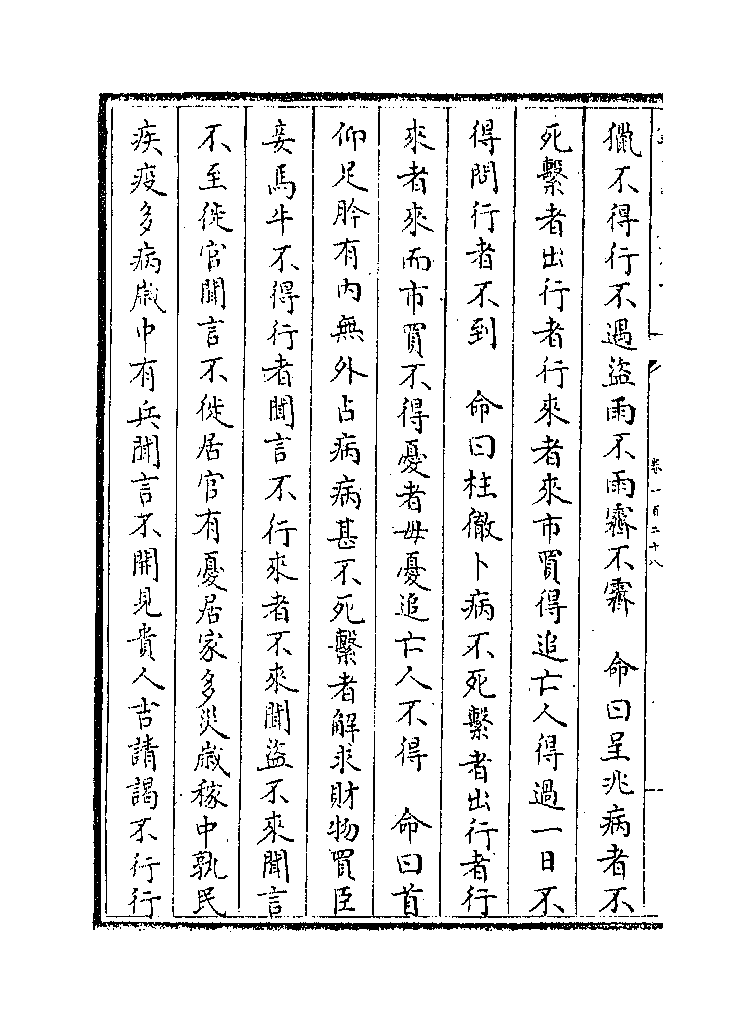 獵不得行不遇盜雨不雨霽不霽　命曰呈兆病者不
死繫者出行者行來者來市買得追亡人得過一日不
得問行者不到　命曰柱徹卜病不死繫者出行者行
來者來而市買不得憂者毋憂追亡人不得　命曰首
仰足肣有內無外占病病甚不死繫者解求財物買臣
妾馬牛不得行者聞言不行來者不來聞盜不來聞言
不至徙官聞言不徙居官有憂居家多災歲稼中孰民
疾疫多病歲中有兵聞言不開見貴人吉請謁不行行
卷一百二十八